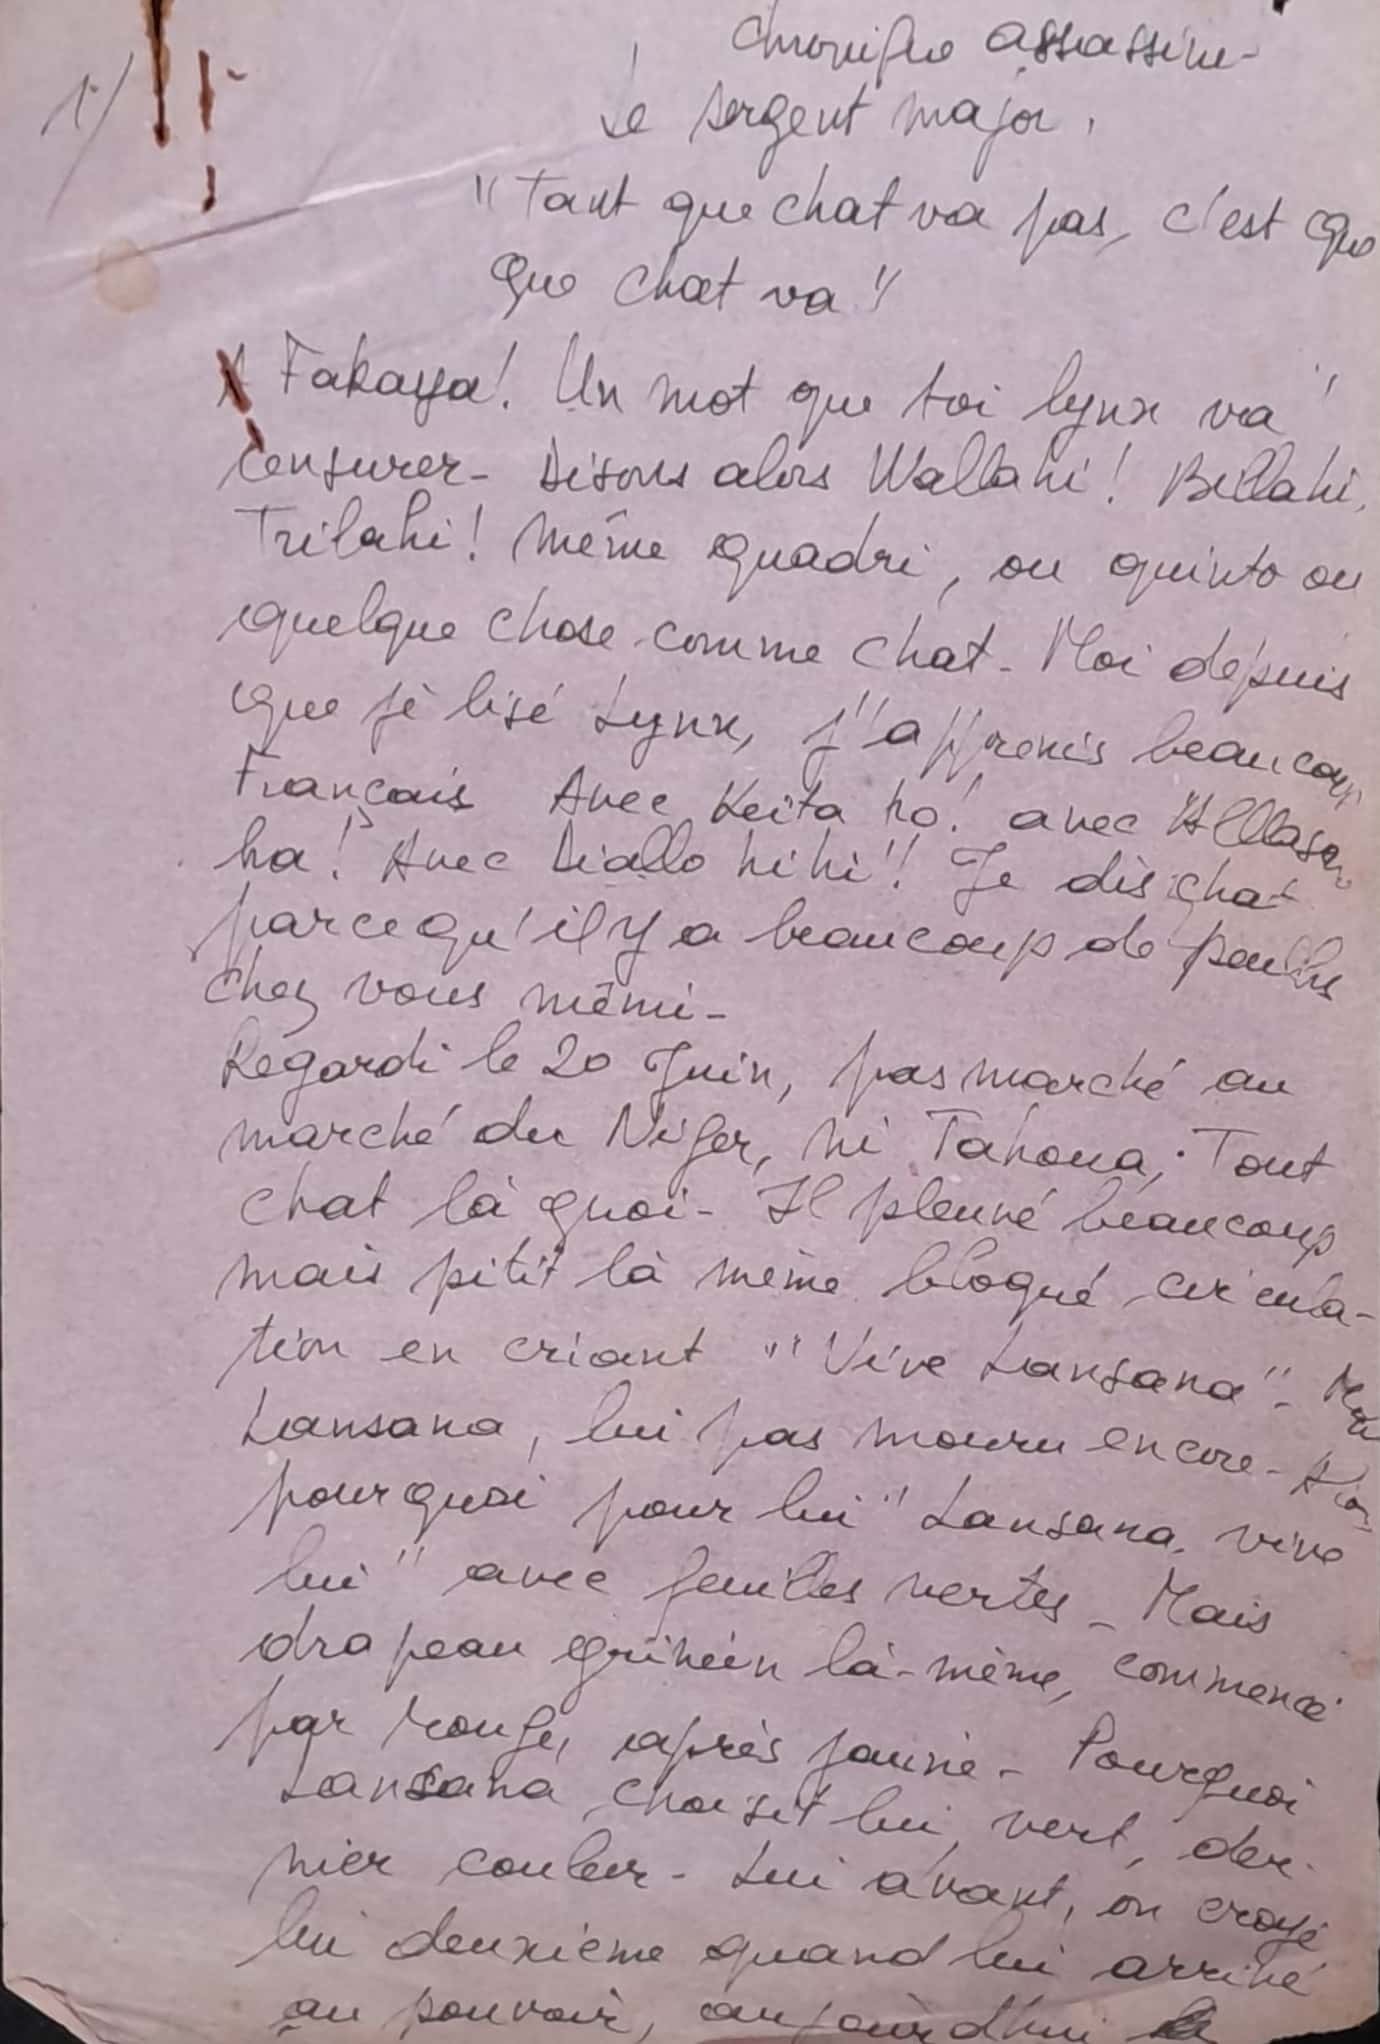 1°/
Chronique assassine -
Le sergent major.
"Tant que chat va pas, c'est que
que chat va"
Fakaya! Un mot que toi lynx va
censurer - Disons alors Wallahi! Billahi,
Trilahi! Même quadri, ou quinto ou
quelque chose comme chat - Moi depuis
que jè lisé Lynx, j'apprenis beaucoup
Français Avec Keita ho! avec Alllasan
ha! Avec Diallo hihi! Je dis chat
parcequ'il y a beaucoup de peulhs
chez vous mêmi -
Regardi le 20 Juin, pas marché au
marché du Niger, ni Tahoua; Tout
chat là quoi - Il pleuvé beaucoup
mais pitit là même bloqué circula-
tion en criant "Vive Lansana" -
Lansana, lui pas mouru encore -
pourquoi pour lui "Lansana, vive
lui" avec feuilles vertes - Mais
drapeau guinéin là-même, commencé
par rouge, après jaune - Pourquoi
Lansana choisit lui vert, der-
nier couleur - Lui avant, on croyé
lui deuxième quand lui arrivé
au pouvoir, aujourd'hui